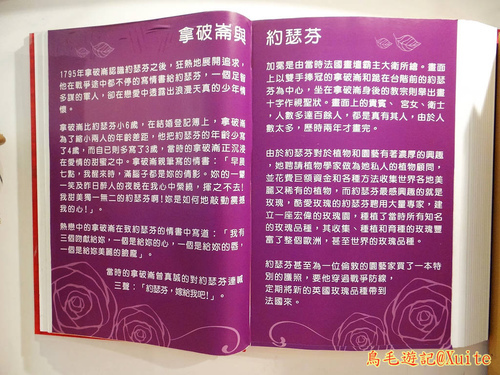 拿破崙與
約瑟芬
1795年拿破崙認識約瑟芬之後，狂熱地展開追求，
他在戰爭途中都不停的寫情書給約瑟芬，一個足智
多謀的軍人，卻在戀愛中透露出浪漫天真的少年情
懷。
拿破崙比約瑟芬小6歲，在結婚登記簿上，拿破崙
為了縮小兩人的年齡差距，他把約瑟芬的年齡少寫
了4歲，而自己則多寫了3歲，當時的拿破崙正沉浸
在愛情的甜蜜之中。拿破崙親筆寫的情書：「早晨
七點，我醒來時，滿腦子都是妳的倩影。妳的一顰
一笑及昨日醉人的夜晚在我心中縈繞，揮之不去！
我甜美獨一無二的約瑟芬啊！妳是如何地敲動震撼
我的心！」。
熱戀中的拿破崙在致約瑟芬的情書中寫道：「我有
三個吻獻給妳，一個是給妳的心，一個是給妳的唇，
一個是給妳美麗的臉龐」。
當時的拿破崙曾真誠的對約瑟芬連喊
三聲：「約瑟芬，嫁給我吧！」。
加冕是由當時法國畫壇霸主大衛所繪。畫面
上以雙手捧冠的拿破崙和跪在台階前的約瑟
芬為中心，坐在拿破崙身後的教宗則舉出畫
十字作統聖狀。畫面上的貴賓、宮女、衛士
，人數多達百餘人，都是真有其人，由於人
數太多，歷時兩年才畫完。
由於約瑟芬對於植物和園藝有著濃厚的興趣
，她聘請植物學家做為她私人的植物顧問，
並花費巨額資金和各種方法收集世界各地美
麗又稀有的植物，而約瑟芬最感興趣的就是
玫瑰，酷愛玫瑰的約瑟芬聘用大量專家，建
立一座宏偉的玫瑰園，種植了當時所有知名
的玫瑰品種，其收集、種植和育種的玫瑰豐
富了整個歐洲，甚至世界的玫瑰品種。
約瑟芬甚至為一位倫敦的園藝家買了一本特
別的護照，要他穿過戰爭防線，
定期將新的英國玫瑰品種帶到
法國來。
鳥毛遊記@Xuite